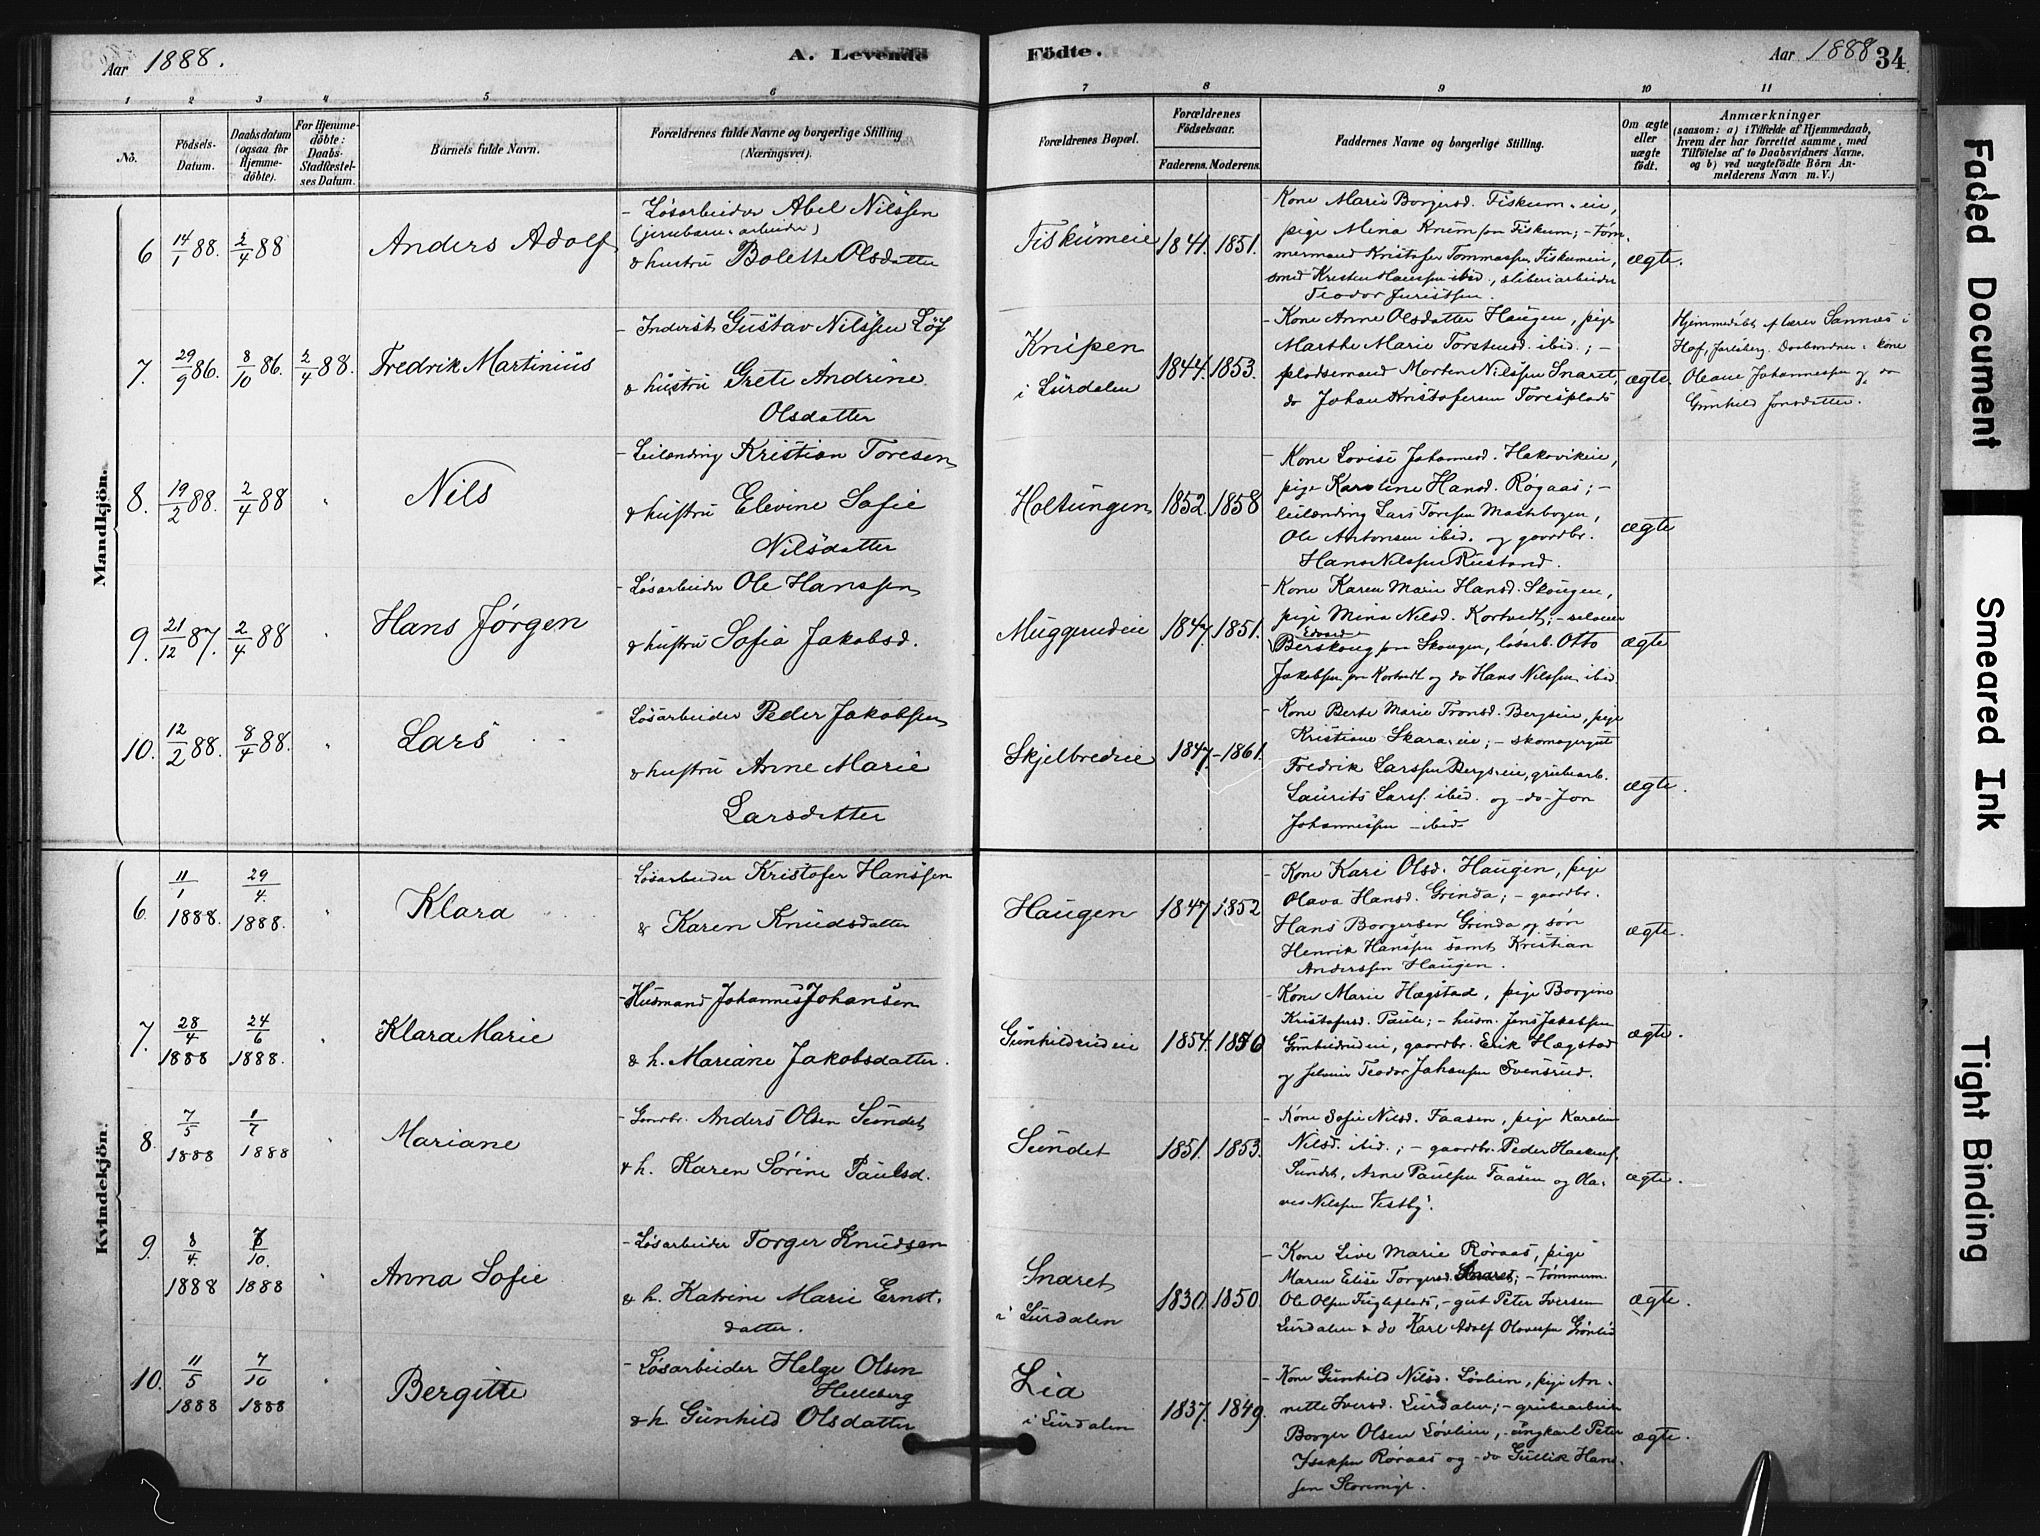 Aar 1888.
A. Levende
Födte.
Aar 1888
34
1 2 3 4 5 6
7 8 9 10 11
No.
Födsels-Datum.
Daabsdatum (ogsaa for Hjemme-döbte).
For Hjemme-döbte: Daabs-Stadfæstelses Datum.
Barnets fulde Navn.
Forældrenes fulde Navne og borgerlige Stilling
(Næringsvei).
Forældrenes Bopæl.
Forældrenes Födselsaar.
Faderens. Moderens.
Faddernes Navne og borgerlige Stilling.
Om ægte eller uægte födt.
Anmærkninger
(saasom: a) i Tilfælde af Hjemmedaab,
hvem der har forrettet samme, med
Tilföielse af to Daabsvidners Navne,
og b) ved uægtefödte Börn An-
melderens Navn m. V.)
Mandkjön.
6 14/1 88. 2/4 88 Anders Adolf
- Løsarbeider Abel Nilssen
(jernbanearbeider)
& hustru Bolette Olsdatter
Fiskumeie 1841. 1851.
- Kone Marie Borgersd. Fiskum-eie,
pige Mina Knum fra Fiskum; - tøm-
mermand Kristofer Tommassen Fiskumeie,
smed Kristen Hanssen ibid., sliberiarbeider
Teodor Juristsen.
ægte.
7. 29/9 86. 8/10 86. 2/4 88. Fredrik Martinius
- Inderst Gustav Nilssen Løf
& hustru Grete Andrine
Olsdatter
Knipen
i Lurdalen
1844. 1853.
- Kone Anne Olsdatter Haugen, pige
Marthe Marie Torstensd. ibid.; -
pladsemand Morten Nilssen Snaret,
do Johan Kristofersen Toresplads
ægte.
Hjemmedøbt af lærer Sannæs i
Hof, Jarlsberg. Daabsvidner: kone
Oleane Johannessen og do
Gunhild Jonsdatter.
8. 19/2 88. 2/4 88 " Nils
- Leilænding Kristian Toresen
& hustru Elevine Sofie
Nilsdatter
Holtungen 1852. 1858
- Kone Lovise Johannesd. Hakavikeie,
pige Karoline Hansd. Røgaas; -
leilænding Lars Toresen Mastebogen,
Ole Antonsen ibid. og gaardbr.
Hans Nilssen Rustand.
ægte
9. 21/12 87. 2/4 88 " Hans Jørgen
- Løsarbeider Ole Hanssen
& hustru Sofia Jakobsd.
Muggerudeie 1847. 1851.
- Kone Karen Marie Hansd. Skougen,
pige Mina Nilsd. Kortvedt; - seloeier
Edvard
Berskoug fra Skougen, løsarb. Otto
Jakobsen fra Kortvedt og do Hans Nilssen ibid.
ægte
10. 12/2 88. 8/4 88. " Lars
Løsarbeider Peder Jakobsen
& hustru Anne Marie
Larsdatter
Skjelbredeie 1847. - 1861.
- Kone Berte Marie Tronsd. Bergseie, pige
Kristiane Skara-eie; - skomagergut
Fredrik Larssen Bergseie, grubearb.
Laurits Larss. ibid. og -do- Jon
Johannessen - ibid-
ægte.
Kvindekjön.
6. 11/1 1888. 29/4. 1888. " Klara
- Løsarbeider Kristofer Hanssen
& Karen Knudsdatter
Haugen 1847. 1852
- Kone Kari Olsd. Haugen, pige
Olava Hansd. Grinda; - gaardbr.
Hans Borgersen Grinda og søn
Henrik Hanssen samt Kristian
Anderssen Haugen.
ægte.
7. 28/4 1888 24/6 1888. " Klara Marie
- Husmand Johannes Johansen
& h. Mariane Jakobsdatter.
Gunhildrudeie 1854. 1850
- Kone Marie Hægstad, pige Borgine
Kristofersd. Paule; - husm. Jens Jakobsen
Gunhildrudeie, gaardbr. Erik Hægstad
og seloeier Teodor Johansen Svensrud.
ægte.
8. 7/5 1888 1/7 1888 " Mariane
- Gaardbr. Anders Olsen Sundet
& h. Karen Sørine Paulsd.
Sundet 1851. 1853.
- Kone Sofie Nilsd. Faasen, pige Karoline
Nilsd. ibid.; - gaardbr. Peder Haakens.
Sundet, Arne Paulsen Faasen og Ola-
ves Nilssen Vestby.
ægte.
9. 8/4. 1888 7/10. 1888 " Anna Sofie
- Løsarbeider Torger Knudsen
& h. Katrine Marie Ernst-
datter.
Snaret
i Lurdalen
1830. 1850.
- Kone Live Marie Røraas, pige
Maren Elise Torgersd. Snaret; - tømmerm.
Ole Olsen Fugleplads, - gut Peter Iversen
Lurdalen & do Karl Adolf Olavesen Grønlid
ægte.
10. 11/5 1888 7/10 1888 " Bergitte
- Løsarbeider Helge Olsen
Helleberg
& h. Gunhild Olsdatter
Lia
i Lurdalen
1837. 1849.
- Kone Gunhild Nilsd. Løvlien, pige An-
nette Iversd. Lurdalen; - grubearbeider
Borger Olsen Løvlien, - ungkarl Peter
Isaksen Røraas og -do Gullik Hans-
sen Storemyr.
ægte.
Faded Document
Smeared Ink
Tight Binding